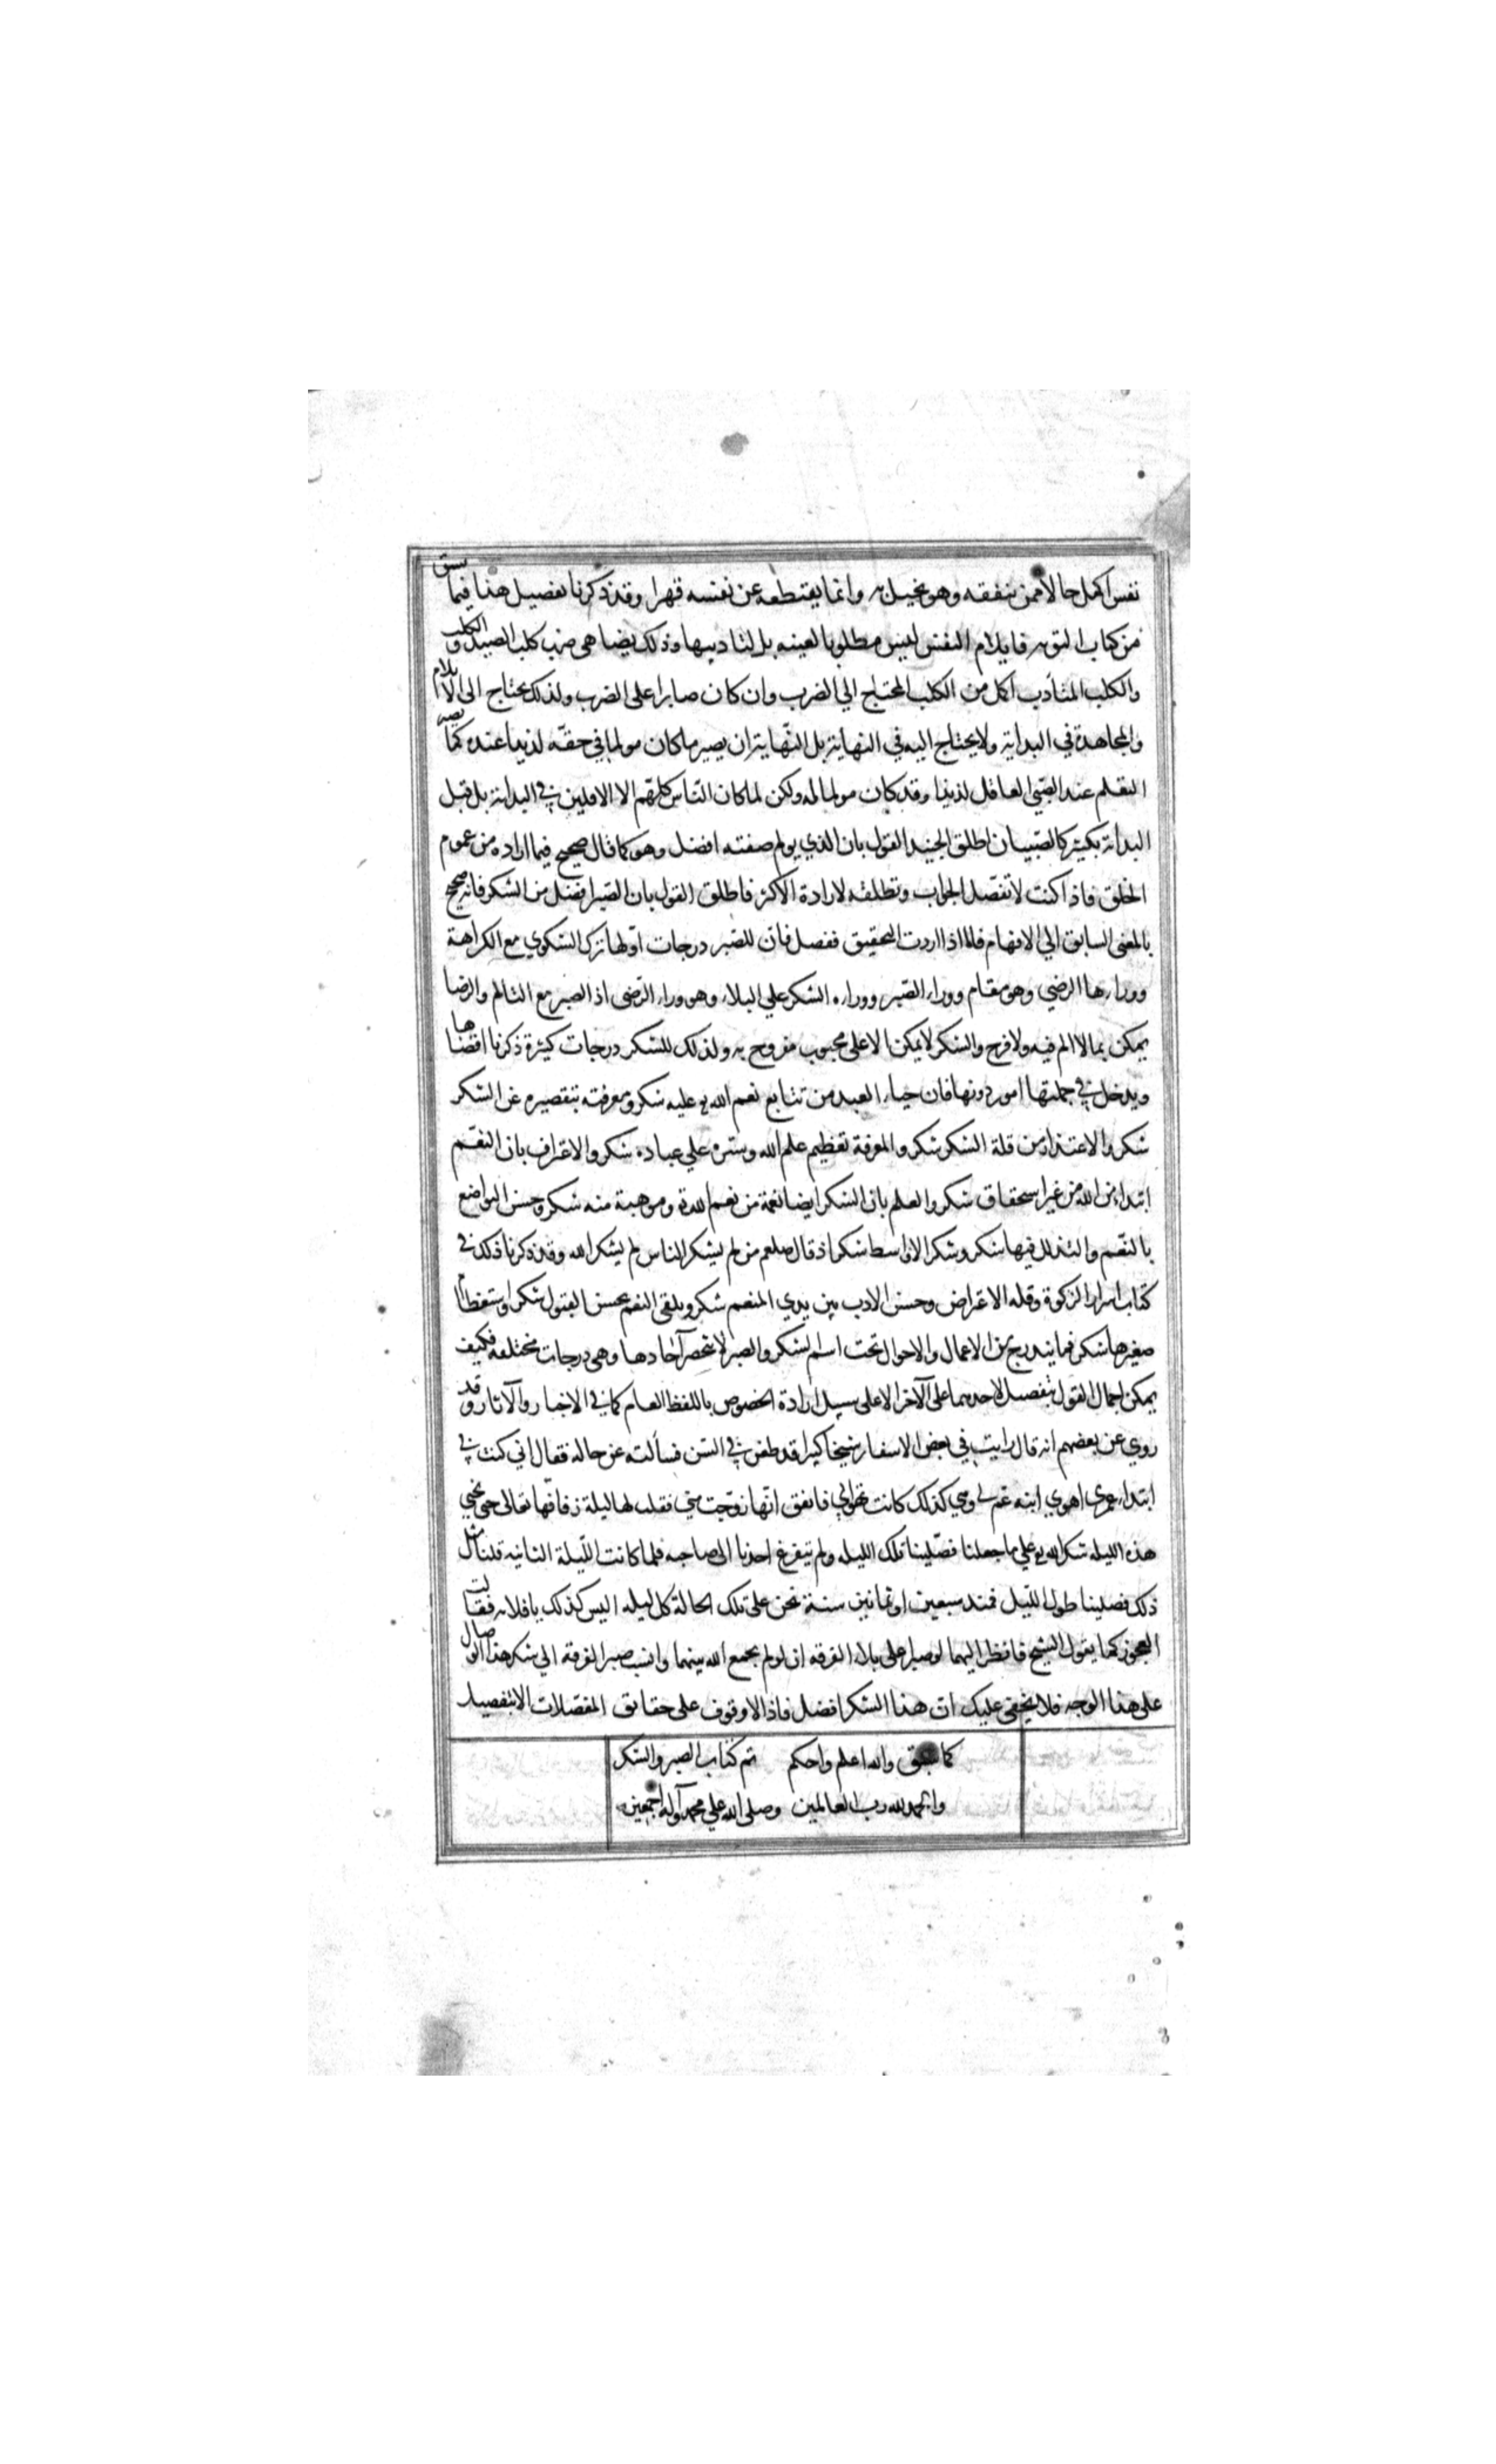 نفس اكمل حالا ممن ينفقه وهو بخيل به وانما يقتطعه عن نفسه قهرا وقد ذكرنا تفصيل هذا فيما سبق
من كتاب التوبه فايلام النفس ليس مطلوبا لعينه بل لتاديبها وذلك يضاهى ضرب كلب الصيد و الكلب
والكلب المتأدب اكمل من الكلب المحتاج الي الضرب وان كان صابرا على الضرب ولذلك يحتاج الى الايلام
والمجاهدة في البداية ولا يحتاج اليه في النهاية بل النهاية ان يصير ما كان مولما في حقه لذيذا عنده كما يصير
التعلم عند الصبي العاقل لذيذا وقد كان مولما له ولكن لما كان الناس كلهم الا الاقلين في البداية بل قبل
البداية بكثير كالصبيان اطلق الجنيد القول بان الذي يولم صفته افضل وهو كما قال صحيح فيما اراده من عموم
الخلق فاذا كنت لا تفصل الجواب وتطلقه لارادة الاكثر فاطلق القول بان الصبر افضل من الشكر فانه صحيح
بالمعنى السابق الي الافهام فاما اذا اردت التحقيق ففصل فان للصبر درجات اولها ترك الشكوي مع الكراهة
ووراءها الرضي وهو مقام ووراء الصبر ووراه الشكر علي البلاء وهو وراء الرضى اذ الصبر مع التالم والرضا
يمكن بما لا الم فيه ولا فرح والشكر لا يمكن الا على محبوب مفروح به ولذلك للشكر درجات كثيرة ذكرنا اقصاها
ويدخل في جملتها امور دونها فان حياء العبد من تتابع نعم الله عليه شكر ومعرفته بتقصيره عن الشكر
شكر والاعتذار من قلة الشكر شكر والمعرفة تعظيم علم الله وستره علي عباده شكر والاعتراف بان النعم
ابتداء من الله من غير استحقاق شكر والعلم بان الشكر ايضا نعمة من نعم الله وموهبة منه شكر وحسن التواضع
بالنعم والتذلل فيها شكر وشكر الاواسط شكر اذ قال صلعم من لم يشكر الناس لم يشكر الله وقد ذكرنا ذلك في
كتاب اسرار الزكوة وقله الاعتراض وحسن الادب بين يدي المنعم شكر وتلقى النعم بحسن القبول شكر واستعظام
صغيرها شكر فما يندرج من الاعمال والاحوال تحت اسم الشكر والصبر لا تنحصر آحادها وهى درجات مختلفه فكيف
يمكن اجمال القول بتفصيل لاحدهما على الآخر الا على سبيل ارادة الخصوص باللفظ العام كما في الاخبار والآثار وقد
روي عن بعضهم انه قال رايت في بعض الاسفار شيخا كبيرا قد طعن في السن فسألته عن حاله فقال اني كنت في
ابتداء عمري اهوي ابنة عم لي وهي كذلك كانت تهواني فاتفق انها زوجت مني فقلت لها ليلة زفافها تعالى حتى نحيي
هذه الليله شكرا لله علي ما جعلنا فصلينا تلك الليله ولم يتفرغ احدنا الى صاحبه فلما كانت الليلة الثانيه قلنا مثل
ذلك فصلينا طول الليل فمند سبعين او ثمانين سنة نحن على تلك الحالة كل ليله اليس كذلك يا فلانه فقالت
العجوز كما يقول الشيخ فانظر اليهما لو صبرا على بلاء الفرقه ان لو لم يجمع الله بينهما وانسب صبر الفرقة الي شكر هذا الوصال
على هذا الوجه فلا يخفى عليك ان هذا الشكر افضل فاذا لا وقوف على حقايق المفصلات الا بتفصيل
كما سبق والله اعلم واحكم تم كتاب الصبر والشكر
والحمد لله رب العالمين وصلى الله علي محمد وآله اجمعين